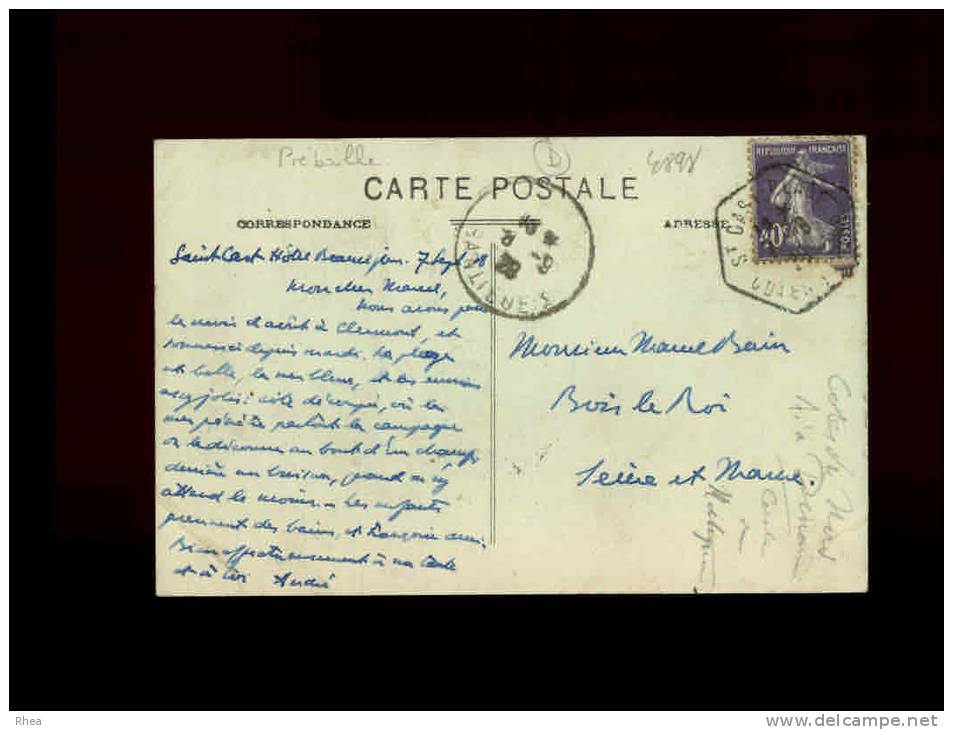 Prébaille
D
4898
CARTE POSTALE
CORRESPONDANCE
ADRESSE
REPUBLIQUE FRANÇAISE
40c
POSTES
Saint Cast Hôtel Beauséjour 7 Sept 28
Mon cher Marcel,
Nous avons passé
le mois d'août à Clermont, et
sommes ici depuis mardi. La plage
est belle, la mer bleue, et les environs
assez jolis : côte découpée, où la
mer pénètre partout la campagne
on la découvre au bout d'un champ,
derrière un buisson, quand on s'y
attend le moins. Les enfants
prennent des bains, et Françoise aussi.
Bien affectueusement à ma tante
et à toi André
Monsieur Marcel Bain
Bois le Roi
Seine et Marne.
Cotes du Nord
Rhea
www.delcampe.net